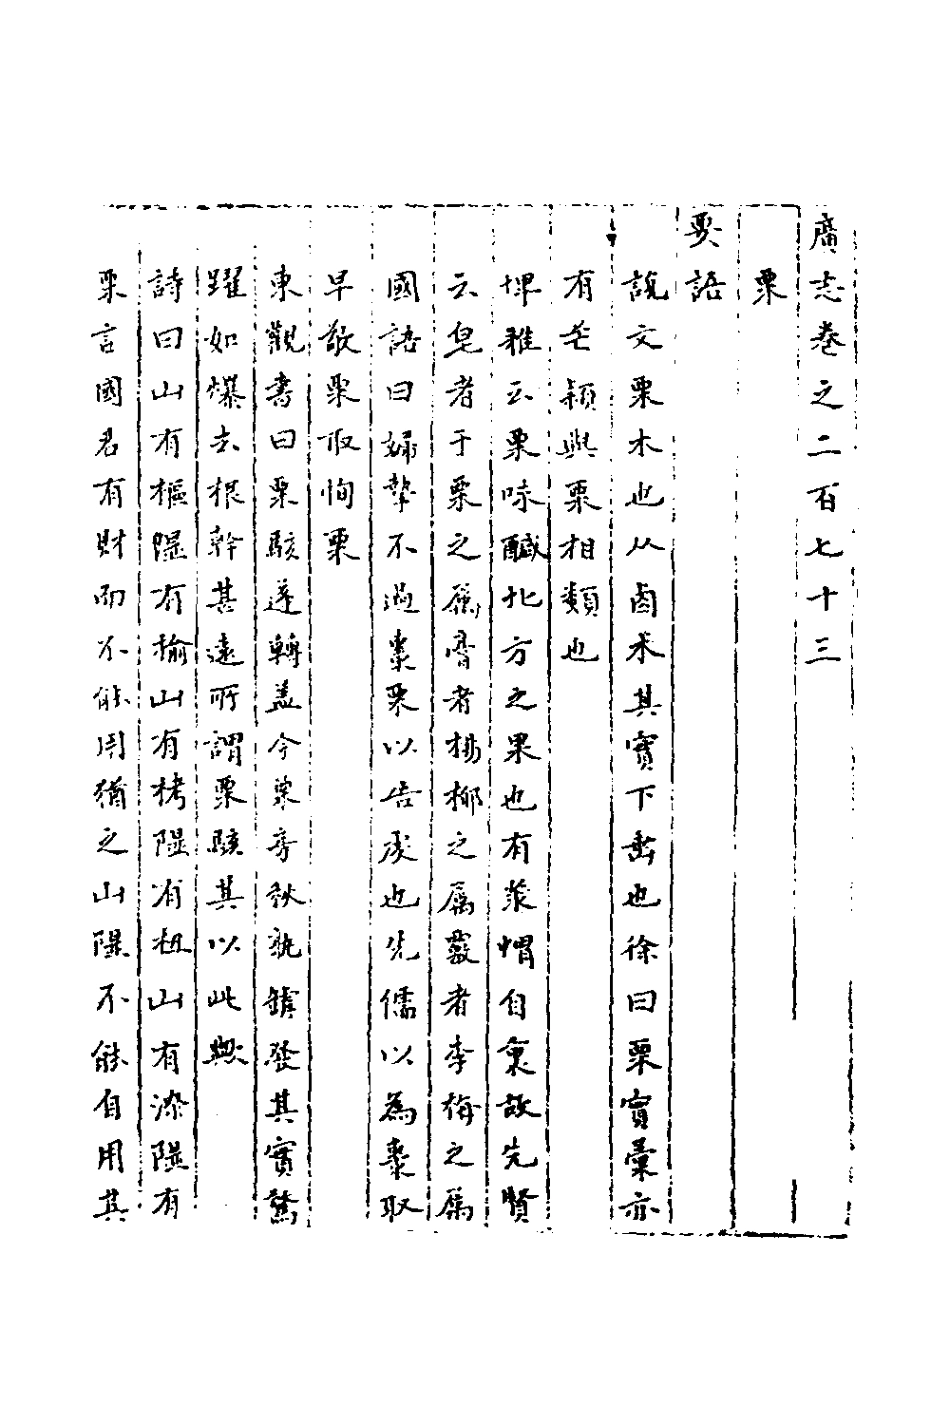 廣志卷之二百七十三
栗
要語
說文栗木也从卤木其實下垂也徐曰栗實彙亦
有芒穎與栗相類也
埤雅云栗味鹹北方之果也有蒺帽自裹故先賢
云皂者于栗之屬膏者楊柳之屬覈者李梅之屬
國語曰婦摯不過棗栗以告虔也先儒以為棗取
早敬栗取恂栗
東觀書曰栗駭蓬轉蓋今栗房秋孰罅發其實驚
躍如爆去根幹甚遠所謂栗駭其以此歟
詩曰山有樞隰有榆山有栲隰有杻山有漆隰有
栗言國君有財而不能用猶之山隰不能自用其